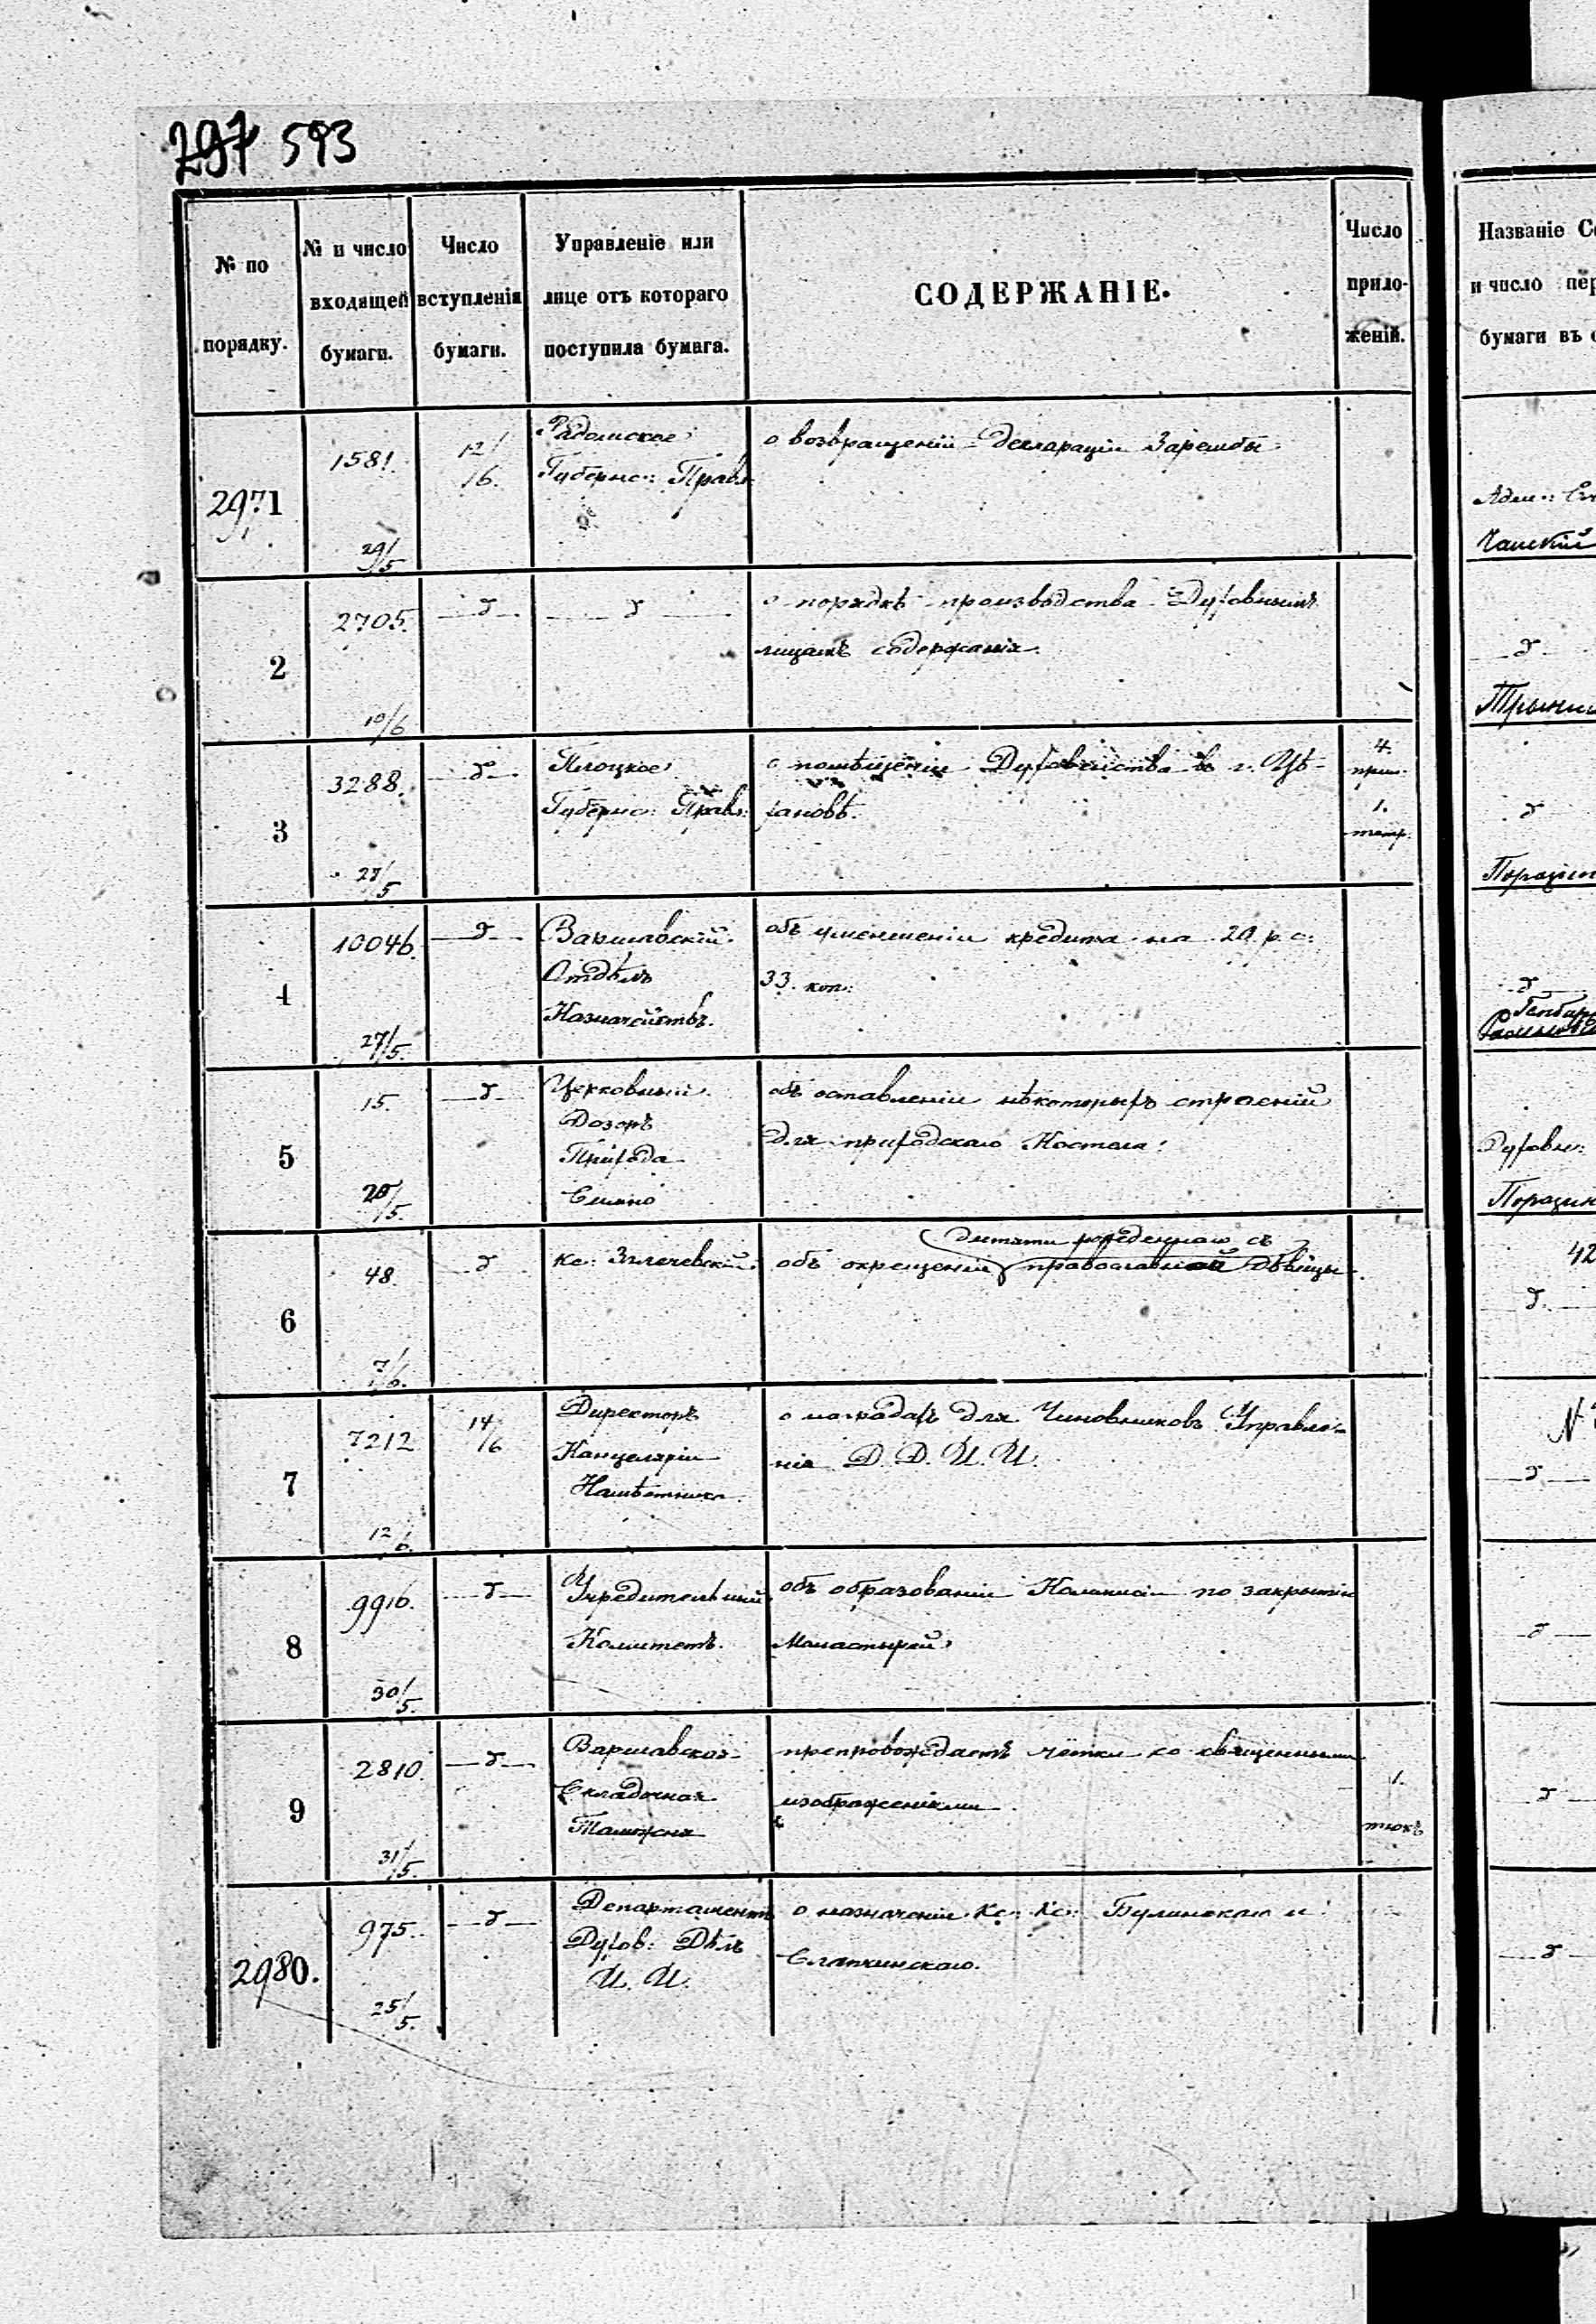 297 593
№ по порядку.
№ и число входящей бумаги.
Число вступленія бумаги.
Управленіе или лице отъ котораго поступила бумага.
СОДЕРЖАНІЕ.
Число приложеній.
Названіе
и число
бумаги въ
2971
1581.
29/5
12/6.
Радомское
Губернс: Правл
о возвращеніи декларации Зарембы
Адм:
2
2705.
10/6
д
д
о порядкѣ производства Духовнымъ
лицамъ содержанія.
д
3
3288.
27/5
д
Плоцкое
Губернс: Правл:
о помѣщеніи Духовенства въ г. Цѣ-
хановѣ.
4.
прил.
1.
тетр.
д
4
10046.
27/5.
д
Варшавскій
Отдѣлъ
Казначействъ.
объ уменшеніи кредита на 20 р. с:
33. коп:
д
5
15.
20/5.
д
Церковный
Дозоръ
Прихода
объ оставленіи нѣкоторыхъ строеній
для приходскаго Костела.
Духовн:
6
48.
7/6.
д
кс:
дитяти рожденнаго съ
объ окрещеніи православной дѣвицы.
42
д
7
7212
12/6.
14/6
Директоръ
Канцеляріи
Намѣстника.
о наградахъ для Чиновниковъ Управле-
нія Д. Д. И. И.
№
д
8
9916.
30/5.
д
Учредительный
Комитетъ.
объ образованіи Комисіи по закрытію
Монастырей.
д
9
2810.
31/5.
д
Варшавская
Складочная
Таможня
препровождаетъ чётки со священными
изображеніями.
1.
тюкъ
д
2980.
975.
25/5.
д
Департаментъ
Духов: Дѣлъ
И. И.
о назначеніи Кс: Кс: Булинскаго и
д